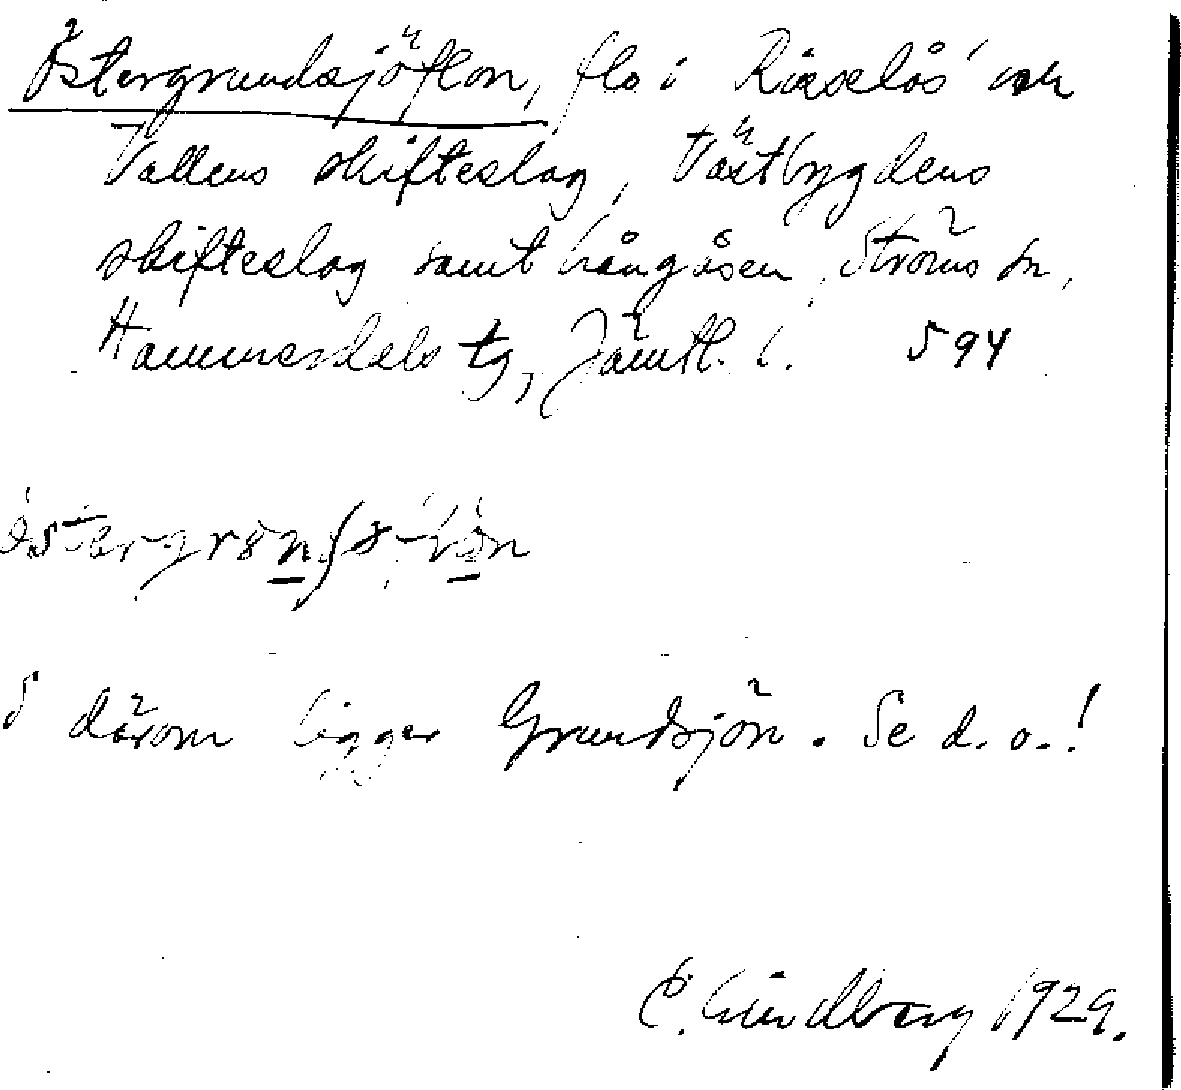 Östergrundsjöflon, flo i Risselås' och
Vallens skifteslag, Västbygdens
skifteslag samt Långåsen, Ströms sn,
Hammerdals tg, Jämtl. l. 594
S därom ligger Grundsjön. Se d. o.!
E. Lindberg 1929.